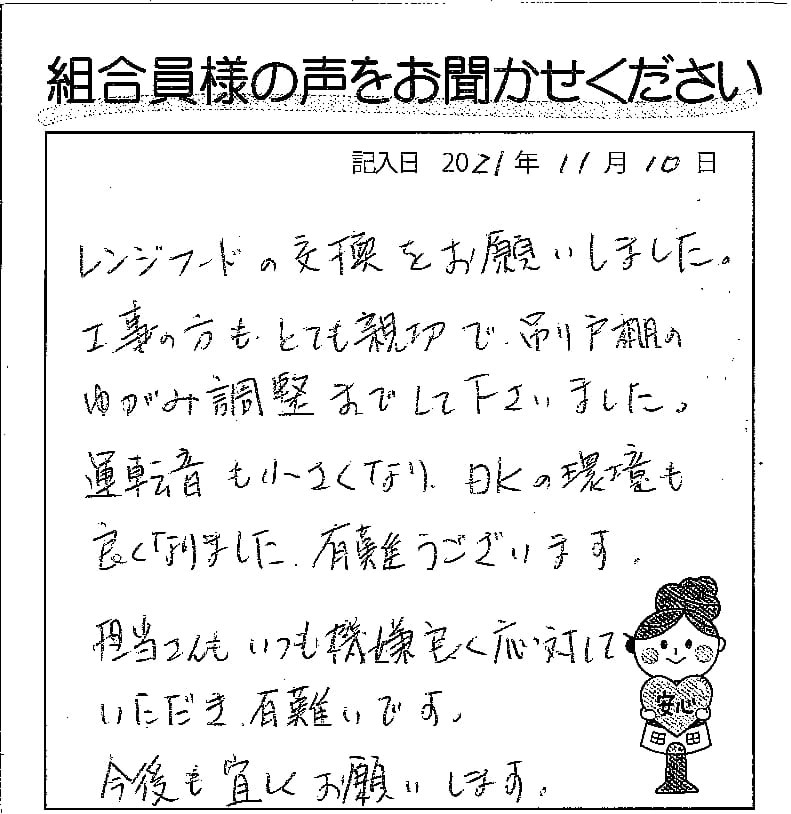 組合員様の声をお聞かせください
記入日 2021年 11月 10日
レンジフードの交換をお願いしました。
工事の方も、とても親切で、吊り戸棚の
ゆがみ調整までして下さいました。
運転音も小さくなり、DKの環境も
良くなりました、有難うございます。
担当さんもいつも機嫌良く応対して
いただき、有難いです。
今後も宜しくお願いします。
安心